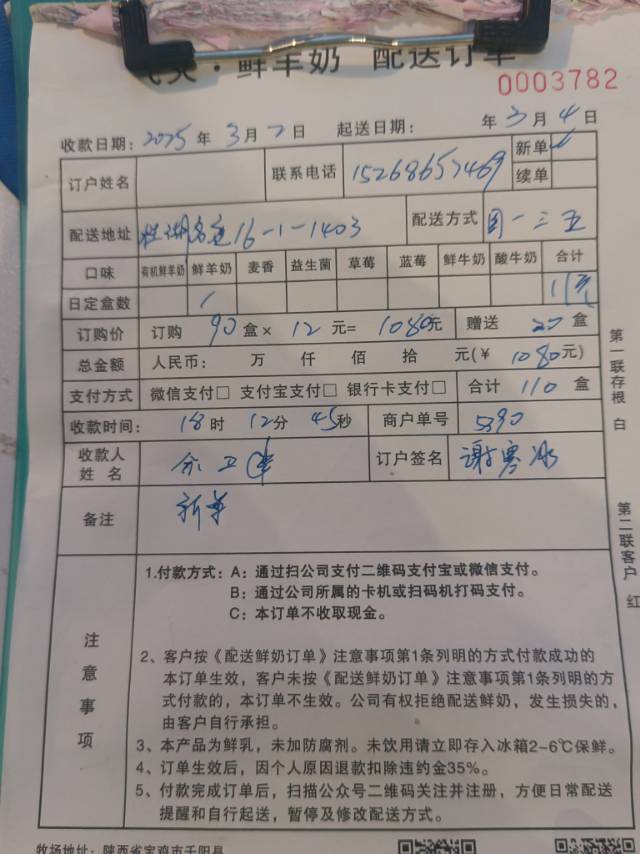 ·鲜羊奶 配送订单
0003782
收款日期：2025年3月2日 起送日期： 年3月4日
订户姓名 联系电话 15268657469 新单✓
续单
配送地址 16-1-1403 配送方式 周一三五
口味 有机鲜羊奶 鲜羊奶 麦香 益生菌 草莓 蓝莓 鲜牛奶 酸牛奶 合计
日定盒数 1
订购价 订购 90 盒× 12 元= 1080元 赠送 20 盒
总金额 人民币： 万 仟 佰 拾 元(¥ 1080元)
支付方式 微信支付□ 支付宝支付□ 银行卡支付□ 合计 110 盒
收款时间： 18时 12分 45秒 商户单号 5390
收款人姓名 订户签名 谢寒冰
备注 新单
注意事项
1.付款方式：A：通过扫公司支付二维码支付宝或微信支付。
B：通过公司所属的卡机或扫码机打码支付。
C：本订单不收取现金。
2、客户按《配送鲜奶订单》注意事项第1条列明的方式付款成功的
本订单生效，客户未按《配送鲜奶订单》注意事项第1条列明的方
式付款的，本订单不生效。公司有权拒绝配送鲜奶，发生损失的，
由客户自行承担。
3、本产品为鲜乳，未加防腐剂。未饮用请立即存入冰箱2-6℃保鲜。
4、订单生效后，因个人原因退款扣除违约金35%。
5、付款完成订单后，扫描公众号二维码关注并注册，方便日常配送
提醒和自行起送，暂停及修改配送方式。
牧场地址：陕西省宝鸡市千阳县
第一联存根 白
第二联客户 红